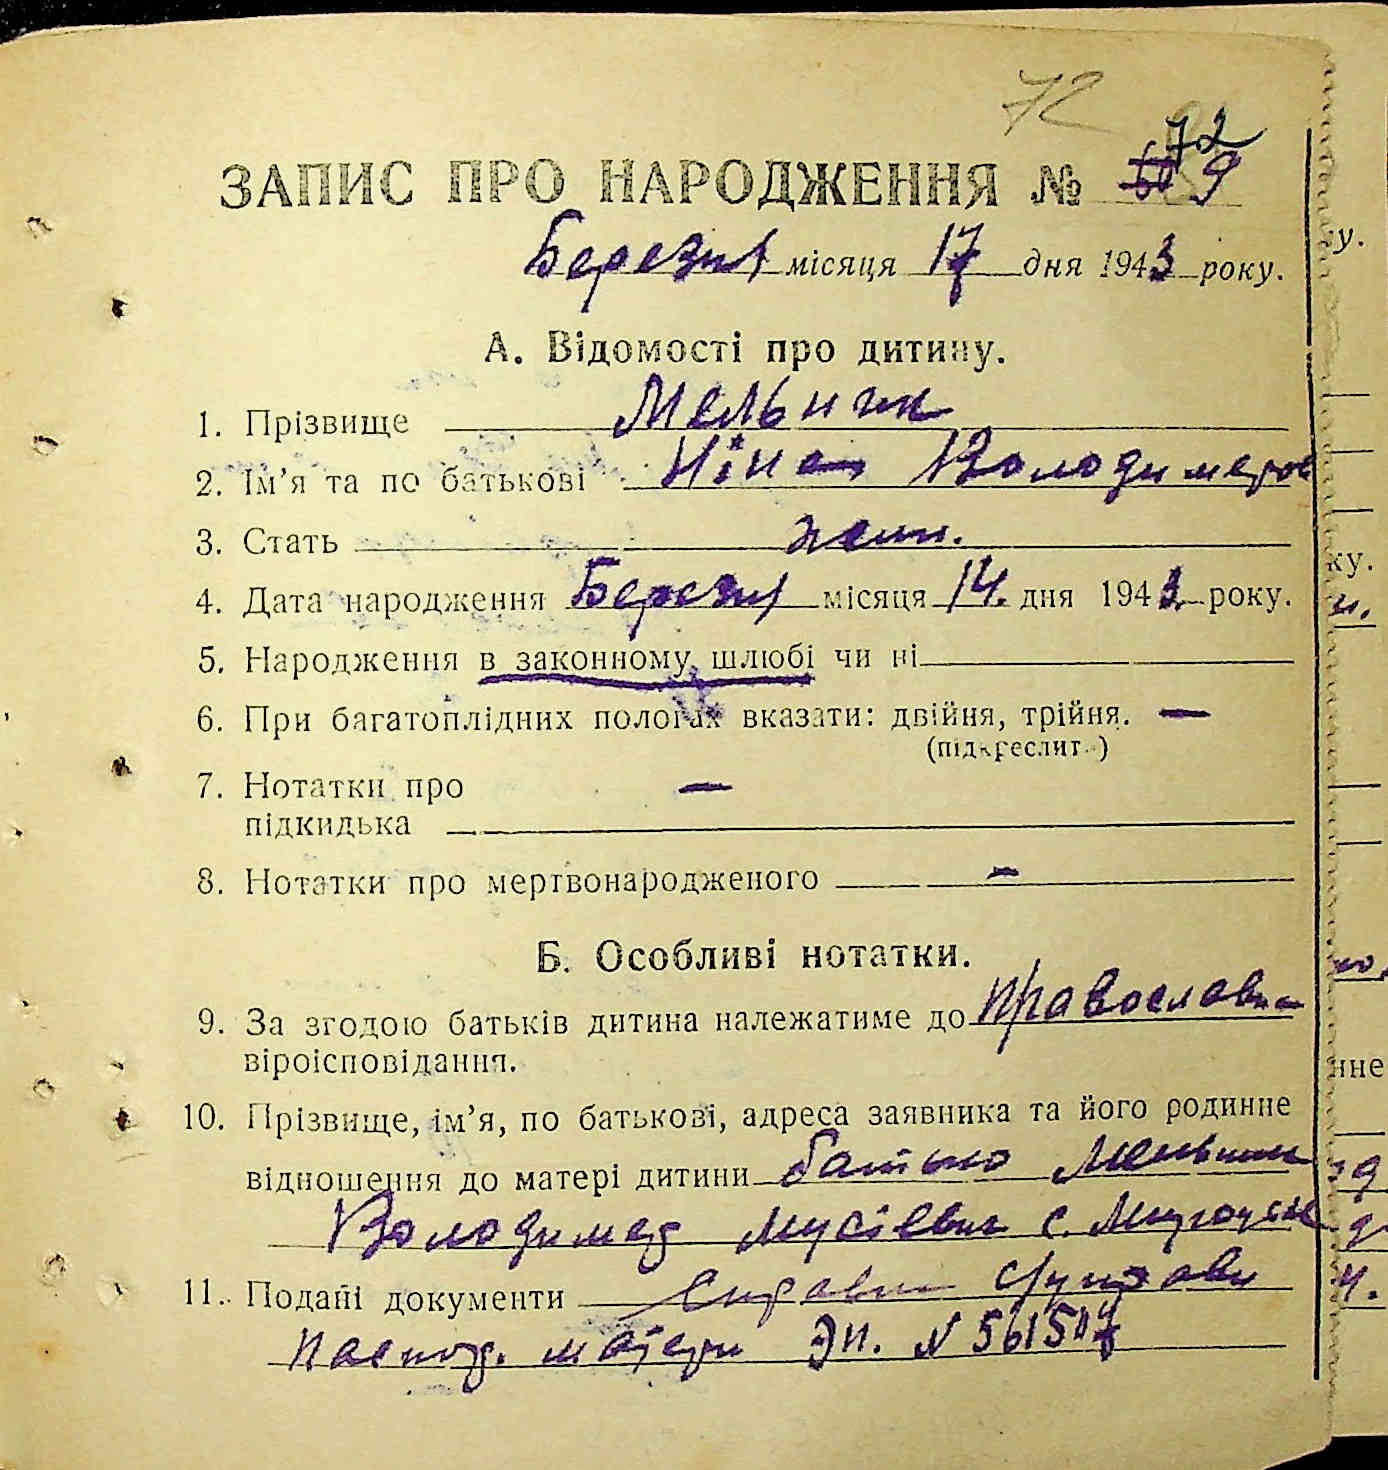 72
72
ЗАПИС ПРО НАРОДЖЕННЯ № 9
Березня місяця 17 дня 1943 року.
А. Відомості про дитину.
1. Прізвище Мельник
2. Ім’я та по батькові Ніна Володимиров
3. Стать жін.
4. Дата народження Березня місяця 14. дня 1943. року.
5. Народження в законному шлюбі чи ні
6. При багатоплідних пологах вказати: двійня, трійня. —
(підкреслит.)
7. Нотатки про —
підкидька
8. Нотатки про мертвонародженого —
Б. Особливі нотатки.
9. За згодою батьків дитина належатиме до православн
віроісповідання.
10. Прізвище, ім’я, по батькові, адреса заявника та його родинне
відношення до матері дитини батько Мельник
Володимер Мусієвич с.
11. Подані документи
паспор. матери ЭП. N 561507